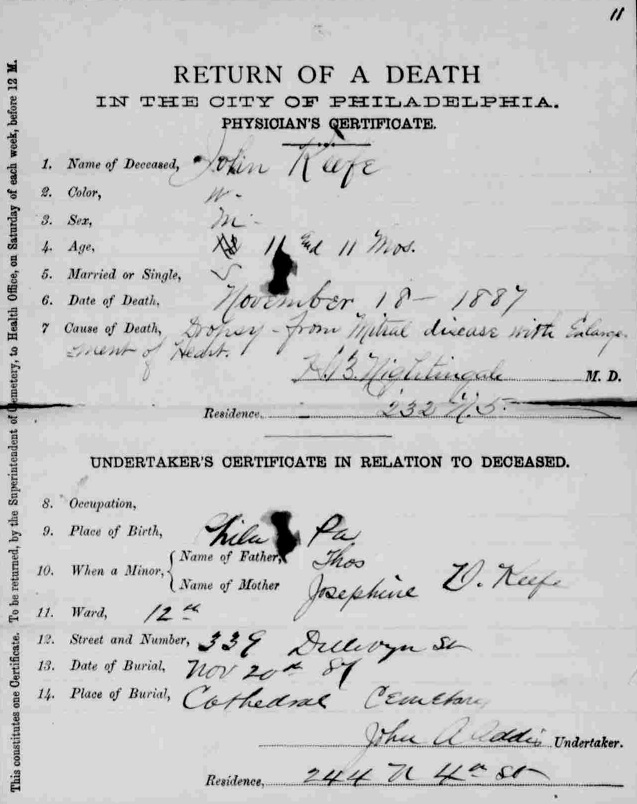 11
RETURN OF A DEATH
IN THE CITY OF PHILADELPHIA.
PHYSICIAN'S CERTIFICATE.
1. Name of Deceased, John Keefe
2. Color, W.
3. Sex, M.
4. Age, 11 and 11 Mos.
5. Married or Single, S
6. Date of Death, November 18 - 1887
7 Cause of Death, Dropsy - from Mitral disease with Enlarge-
ment of Heart.
H. B. Nightingale M. D.
Residence, 232 N. 5
UNDERTAKER'S CERTIFICATE IN RELATION TO DECEASED.
8. Occupation,
9. Place of Birth, Phila Pa
10. When a Minor, { Name of Father, Thos
Name of Mother Josephine Keefe
11. Ward, 12th
12. Street and Number, 339 Dillwyn St
13. Date of Burial, Nov 20th 87
14. Place of Burial, Cathedral Cemetery
John A Addis Undertaker.
Residence, 244 N 4th St
This constitutes one Certificate. To be returned, by the Superintendent of Cemetery, to Health Office, on Saturday of each week, before 12 M.